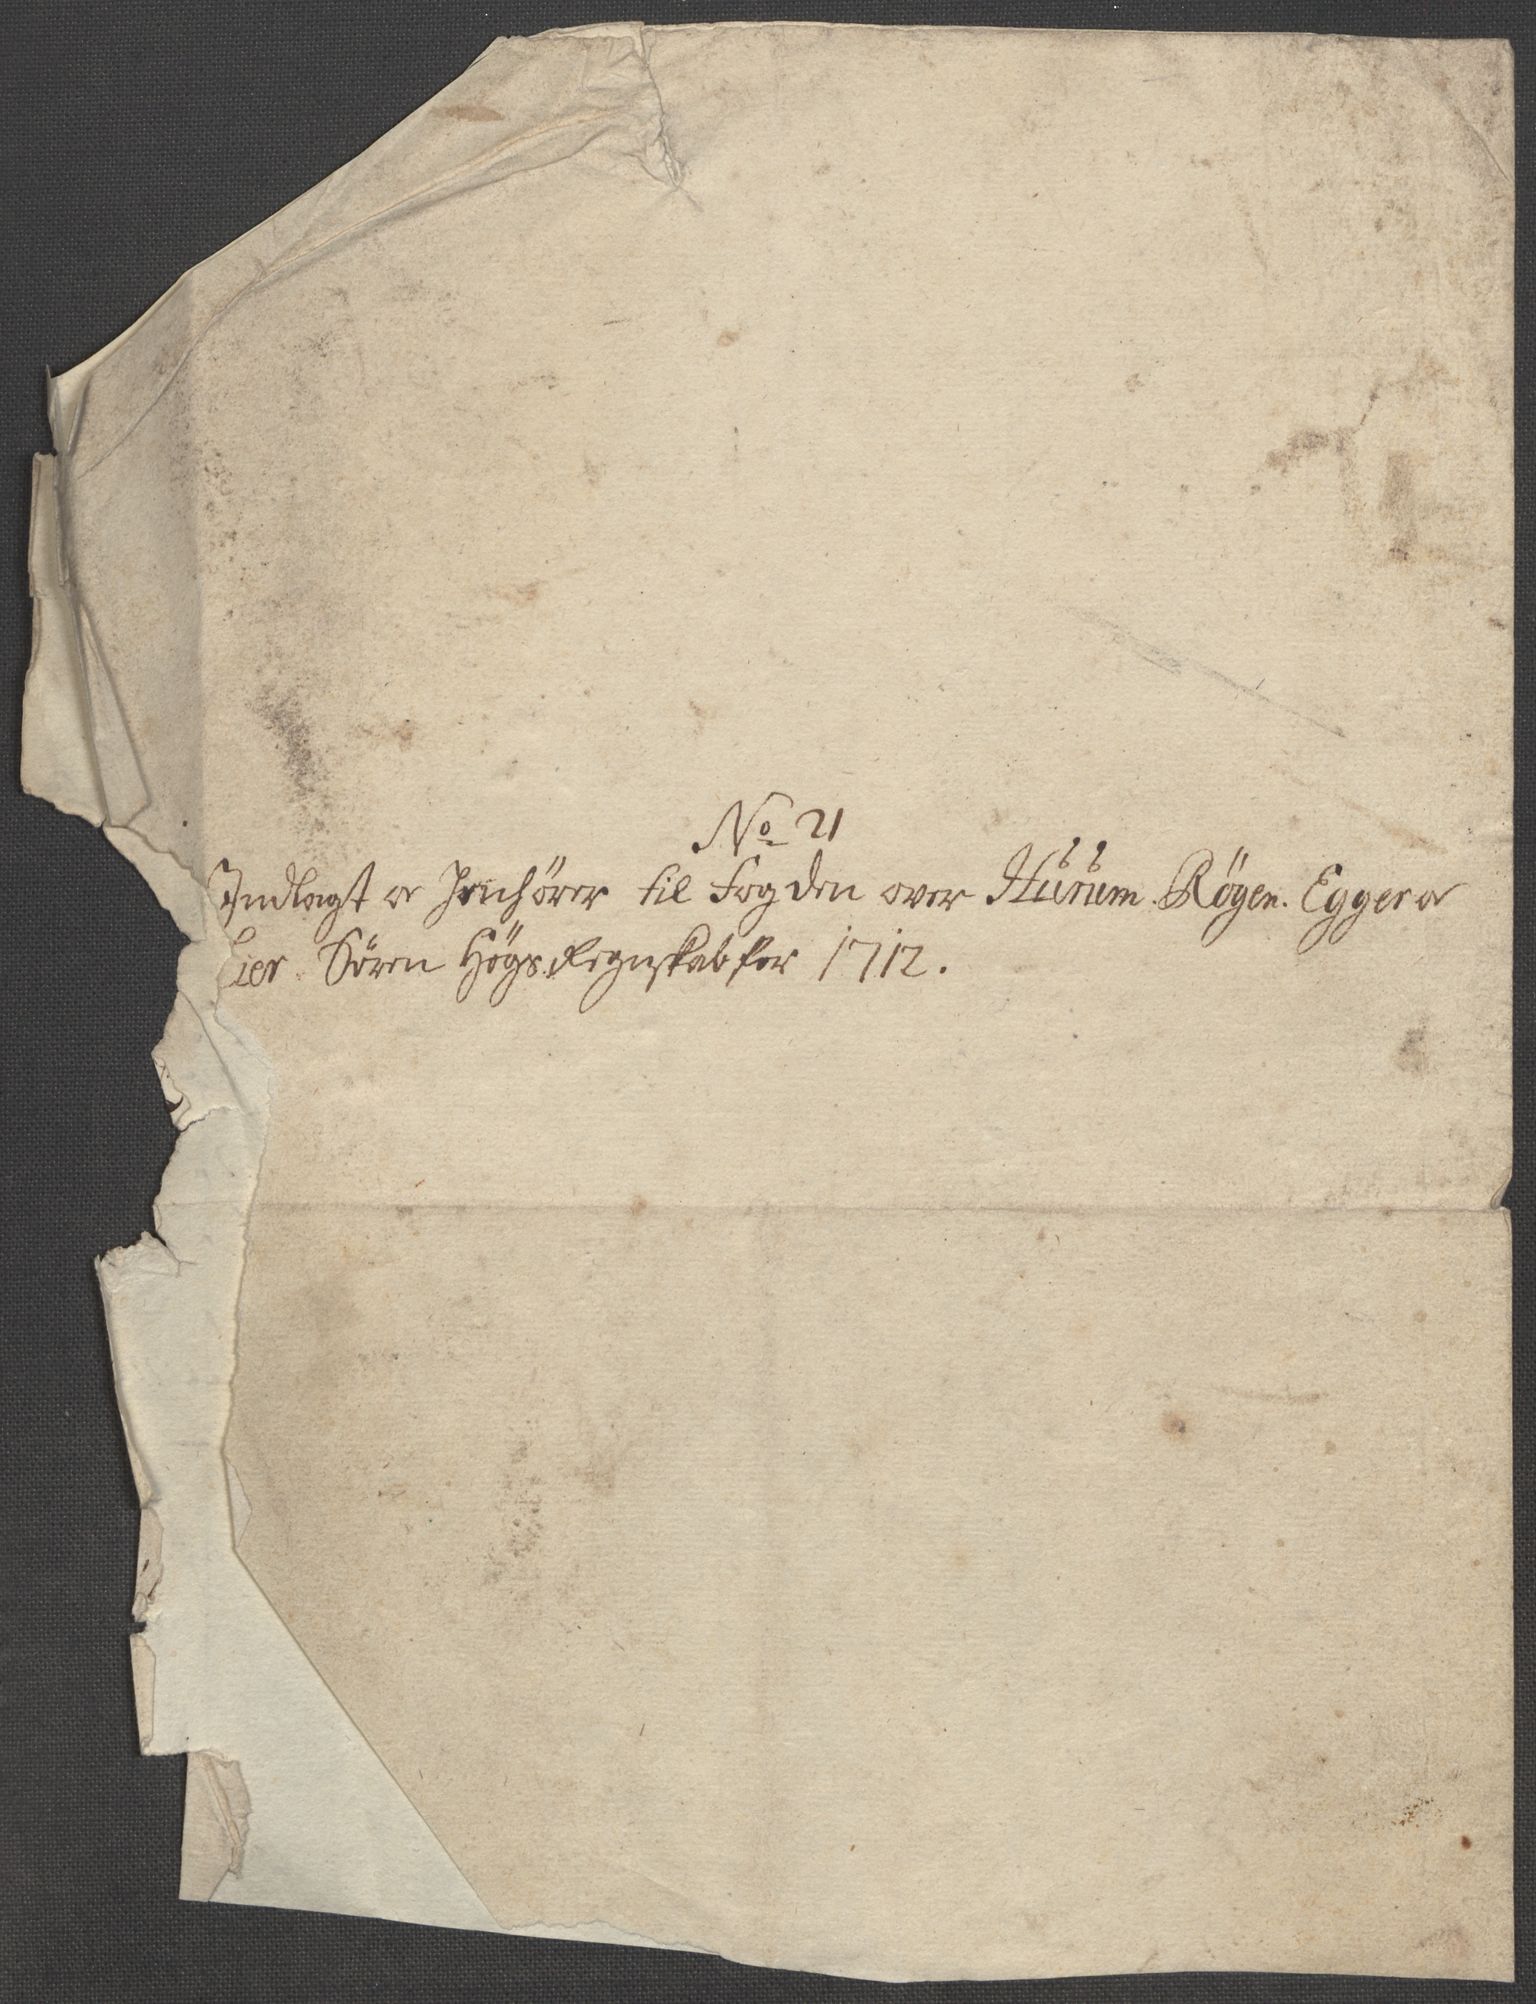 No 21
Indlagt er Henhører til Fogden over Hurum Røgen. Egger og
Lier Sören Högs Regnskab for 1712.